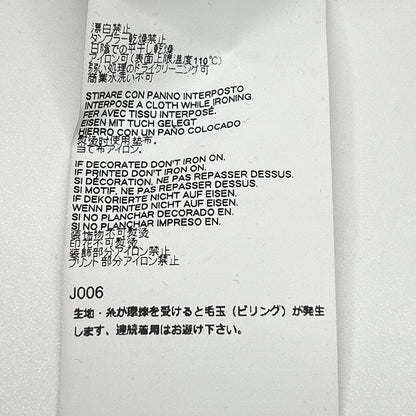 漂白禁止
タンブラー乾燥禁止
日陰での平干し乾燥
アイロン可(表面上限温度110℃)
弱い処理のドライクリーニング可
商業水洗い不可
STIRARE CON PANNO INTERPOSTO
INTERPOSE A CLOTH WHILE IRONING.
FER AVEC TISSU INTERPOSÉ.
EISEN MIT TUCH GELEGT
HIERRO CON UN PAÑO COLOCADO
熨烫时使用垫布。
当て布アイロン。
IF DECORATED DON'T IRON ON.
IF PRINTED DON'T IRON ON.
SI DÉCORATION, NE PAS REPASSER DESSUS.
SI MOTIF, NE PAS REPASSER DESSUS.
IF DEKORIERTE NICHT AUF EISEN.
WENN PRINTED NICHT AUF EISEN.
SI NO PLANCHAR DECORADO EN.
SI NO PLANCHAR IMPRESO EN.
装饰物不可熨烫
印花不可熨烫
装飾部分アイロン禁止
プリント部分アイロン禁止
J006
生地・糸が摩擦を受けると毛玉（ピリング）が発生
します、連続着用はお避け下さい。